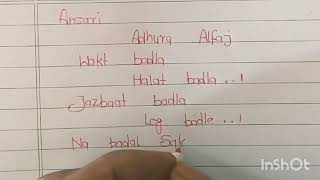 Ansari
Adhura Alfaj
Wakt badla
Halat badla ..!
Jazbaat badla
Log badle ..!
Na badal Sak
InShOt